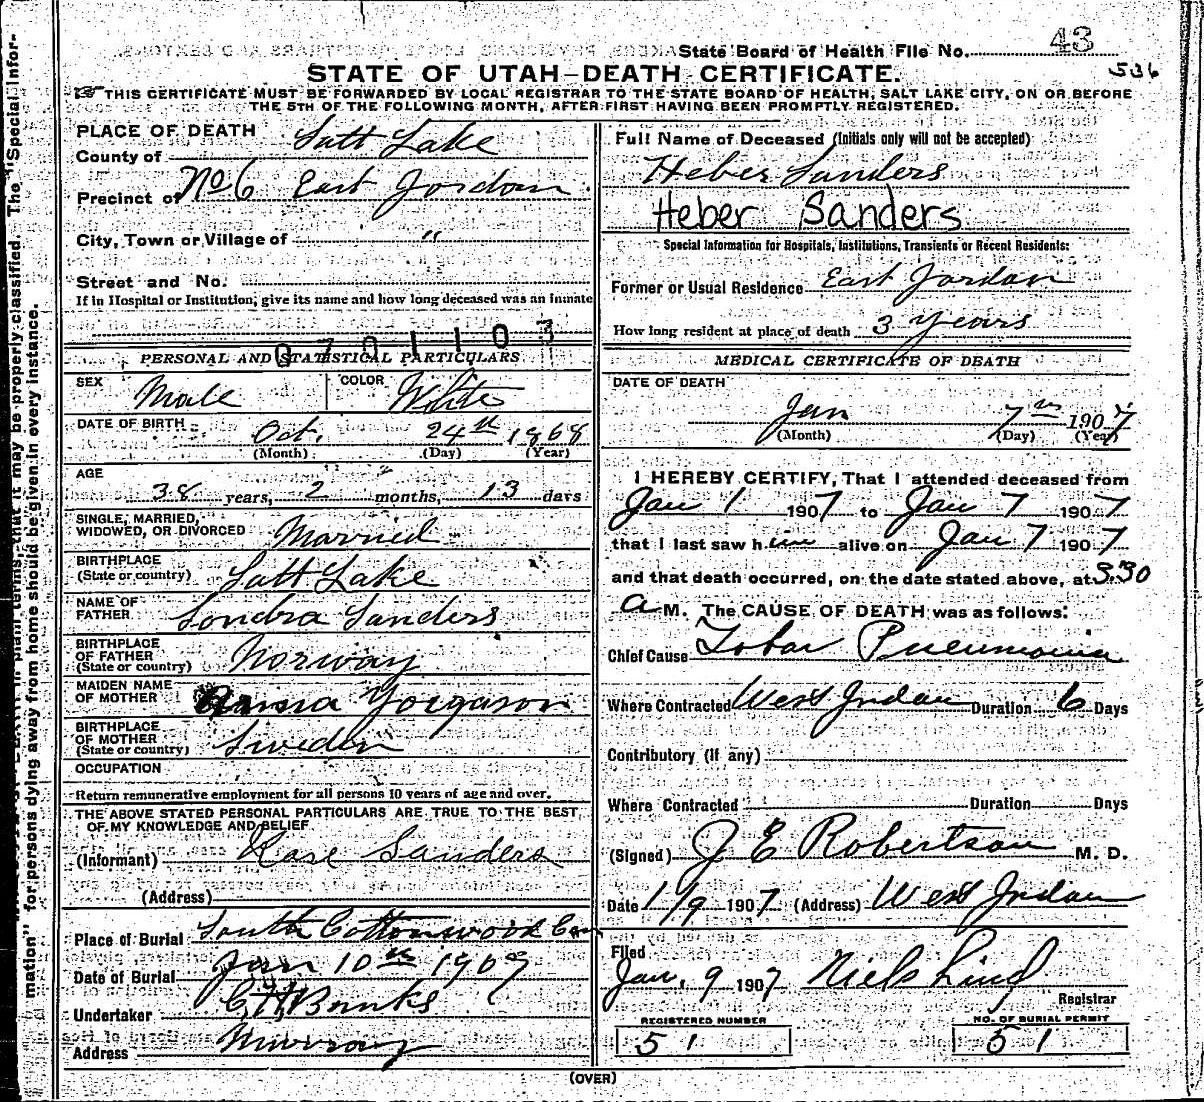 State Board of Health File No. 43
536
STATE OF UTAH—DEATH CERTIFICATE.
THIS CERTIFICATE MUST BE FORWARDED BY LOCAL REGISTRAR TO THE STATE BOARD OF HEALTH, SALT LAKE CITY, ON OR BEFORE
THE 5TH OF THE FOLLOWING MONTH, AFTER FIRST HAVING BEEN PROMPTLY REGISTERED.
PLACE OF DEATH
County of Salt Lake
Precinct of No 6 East Jordan
City, Town or Village of "
Street and No.
If in Hospital or Institution, give its name and how long deceased was an inmate
0701103
PERSONAL AND STATISTICAL PARTICULARS
SEX Male COLOR White
DATE OF BIRTH Oct. 24th 1868
(Month) (Day) (Year)
AGE
38 years, 2 months, 13 days
SINGLE, MARRIED,
WIDOWED, OR DIVORCED Married
BIRTHPLACE
(State or country) Salt Lake
NAME OF
FATHER Sondra Sanders
BIRTHPLACE
OF FATHER
(State or country) Norway
MAIDEN NAME
OF MOTHER Yorgason
BIRTHPLACE
OF MOTHER
(State or country) Sweden
OCCUPATION
Return remunerative employment for all persons 10 years of age and over.
THE ABOVE STATED PERSONAL PARTICULARS ARE TRUE TO THE BEST
OF MY KNOWLEDGE AND BELIEF
(Informant) Rase Sanders
(Address)
Place of Burial South Cottonwood Cem
Date of Burial Jan 10th 1907
Undertaker Banks
Address Murray
Full Name of Deceased (Initials only will not be accepted)
Heber Sanders
Heber Sanders
Special Information for Hospitals, Institutions, Transients or Recent Residents:
Former or Usual Residence East Jordan
How long resident at place of death 3 years
MEDICAL CERTIFICATE OF DEATH
DATE OF DEATH
Jan 7th 1907
(Month) (Day) (Year)
I HEREBY CERTIFY, That I attended deceased from
Jan 1 1907 to Jan 7 1907
that I last saw him alive on Jan 7 1907
and that death occurred, on the date stated above, at 3.30
a M. The CAUSE OF DEATH was as follows:
Chief Cause Lobar Pneumonia
Where Contracted West Jordan Duration 6 Days
Contributory (if any)
Where Contracted Duration Days
(Signed) J E Robertson M. D.
Date 1/9 1907 (Address) West Jordan
Filed
Jan. 9 1907 Niels Lind
Registrar
REGISTERED NUMBER
51
NO. OF BURIAL PERMIT
51
(OVER)
mation" for persons dying away from home should be given in every instance.
that it may be properly classified. The "Special Infor-